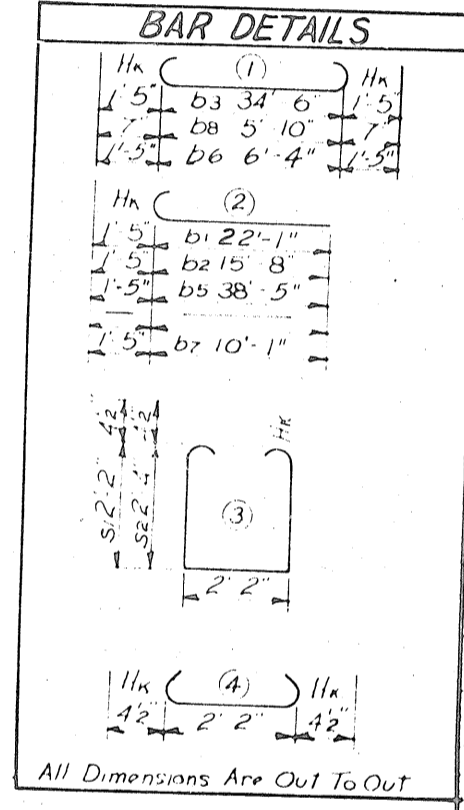 BAR DETAILS
Hk 1 Hk
1' 5" b3 34' 6" 1' 5"
7" b8 5' 10" 7"
1'-5" b6 6'-4" 1'-5"
Hk 2
1' 5" b1 22'-1"
1' 5" b2 15' 8"
1'-5" b5 38'-5"
1' 5" b7 10'-1"
4½" 4½" Hk
S1 2'-2" S2 2'-4" 3
2' 2"
Hk 4 Hk
4½" 2' 2" 4½"
All Dimensions Are Out To Out